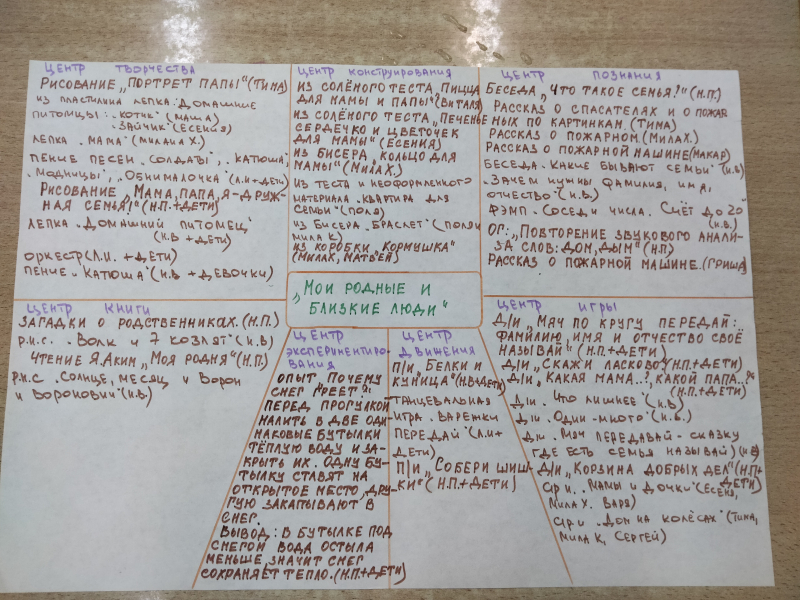 ЦЕНТР ТВОРЧЕСТВА
РИСОВАНИЕ „ПОРТРЕТ ПАПЫ“ (ТИМА)
ИЗ ПЛАСТИЛИНА ЛЕПКА „ДОМАШНИЕ
ПИТОМЦЫ: „КОТИК“ (МАША)
„ЗАЙЧИК“ (ЕСЕНИЯ)
ЛЕПКА „МАМА“ (МИЛАНА Х.)
ПЕНИЕ ПЕСЕН „СОЛДАТЫ“, „КАТЮША“,
„МОДНИЦЫ“, „ОБНИМАЛОЧКА“ (Л.И+ДЕТИ)
РИСОВАНИЕ „МАМА, ПАПА, Я-ДРУЖ-
НАЯ СЕМЬЯ!“ (Н.П.+ДЕТИ)
ЛЕПКА „ДОМАШНИЙ ПИТОМЕЦ“
(Н.В + ДЕТИ)
ОРКЕСТР (Л.И. + ДЕТИ)
ПЕНИЕ „КАТЮША“ (Н.В + ДЕВОЧКИ)
ЦЕНТР КОНСТРУИРОВАНИЯ
ИЗ СОЛЁНОГО ТЕСТА „ПИЦЦА
ДЛЯ МАМЫ И ПАПЫ“ (ВИТАЛЯ)
ИЗ СОЛЁНОГО ТЕСТА „ПЕЧЕНЬЕ
СЕРДЕЧКО И ЦВЕТОЧЕК
ДЛЯ МАМЫ“ (ЕСЕНИЯ)
ИЗ БИСЕРА „КОЛЬЦО ДЛЯ
МАМЫ“ (МИЛА Х.)
ИЗ ТЕСТА И НЕОФОРМЛЕННОГО
МАТЕРИАЛА „КВАРТИРА ДЛЯ
СЕМЬИ“ (ПОЛЯ)
ИЗ БИСЕРА „БРАСЛЕТ“ (ПОЛЯ И
МИЛА К)
ИЗ КОРОБКИ „КОРМУШКА“
(МИЛА Х, МАТВЕЙ)
ЦЕНТР ПОЗНАНИЯ
БЕСЕДА „ЧТО ТАКОЕ СЕМЬЯ?“ (Н.П.)
РАССКАЗ О СПАСАТЕЛЯХ И О ПОЖАР
НЫХ ПО КАРТИНКАМ (ТИМА)
РАССКАЗ О ПОЖАРНОМ (МИЛА Х.)
РАССКАЗ О ПОЖАРНОЙ МАШИНЕ (МАКАР)
БЕСЕДА „КАКИЕ БЫВАЮТ СЕМЬИ“ (Н.В)
„ЗАЧЕМ НУЖНЫ ФАМИЛИЯ, ИМЯ,
ОТЧЕСТВО“ (Н.В.)
ФЭМП „СОСЕДИ ЧИСЛА. СЧЁТ ДО 20“
(Н.В)
ОГ: „ПОВТОРЕНИЕ ЗВУКОВОГО АНАЛИ-
ЗА СЛОВ: ДОМ, ДЫМ“ (Н.П)
РАССКАЗ О ПОЖАРНОЙ МАШИНЕ.. (ГРИША)
„МОИ РОДНЫЕ И
БЛИЗКИЕ ЛЮДИ“
ЦЕНТР КНИГИ
ЗАГАДКИ О РОДСТВЕННИКАХ. (Н.П.)
Р.Н.С. „ВОЛК И 7 КОЗЛЯТ“ (Н.В)
ЧТЕНИЕ Я.АКИМ „МОЯ РОДНЯ“ (Н.П.)
Р.Н.С „СОЛНЦЕ, МЕСЯЦ И ВОРОН
И ВОРОНОВИЧ“ (Н.В)
ЦЕНТР
ЭКСПЕРИМЕНТИРО-
ВАНИЯ
ОПЫТ „ПОЧЕМУ
СНЕГ ГРЕЕТ?“:
ПЕРЕД ПРОГУЛКОЙ
НАЛИТЬ В ДВЕ ОДИ
НАКОВЫЕ БУТЫЛКИ
ТЁПЛУЮ ВОДУ И ЗА-
КРЫТЬ ИХ. ОДНУ БУ-
ТЫЛКУ СТАВЯТ НА
ОТКРЫТОЕ МЕСТО, ДРУ-
ГУЮ ЗАКАПЫВАЮТ В
СНЕГ.
ВЫВОД: В БУТЫЛКЕ ПОД
СНЕГОМ ВОДА ОСТЫЛА
МЕНЬШЕ, ЗНАЧИТ СНЕГ
СОХРАНЯЕТ ТЕПЛО. (Н.П.+ДЕТИ)
ЦЕНТР
ДВИЖЕНИЯ
П/И „БЕЛКИ И
КУНИЦА“ (Н.В+ДЕТИ)
ТАНЦЕВАЛЬНАЯ
ИГРА „ВАРЕЖКИ
ПЕРЕДАЙ“ (Л.И+
ДЕТИ)
П/И „СОБЕРИ ШИШ-
КИ“ (Н.П.+ДЕТИ)
ЦЕНТР ИГРЫ
Д/И „МЯЧ ПО КРУГУ ПЕРЕДАЙ:
ФАМИЛИЮ, ИМЯ И ОТЧЕСТВО СВОЁ
НАЗЫВАЙ“ (Н.П+ДЕТИ)
Д/И „СКАЖИ ЛАСКОВО“ (Н.П+ДЕТИ)
Д/И „КАКАЯ МАМА..?, КАКОЙ ПАПА..?“
(Н.П.+ДЕТИ)
Д/И „ЧТО ЛИШНЕЕ“ (Н.В)
Д/И „ОДИН-МНОГО“ (Н.В.)
Д/И „МЯЧ ПЕРЕДАВАЙ-СКАЗКУ
ГДЕ ЕСТЬ СЕМЬЯ НАЗЫВАЙ) (Н.В)
Д/И „КОРЗИНА ДОБРЫХ ДЕЛ“ (Н.П+
ДЕТИ)
С/Р/И „МАМЫ И ДОЧКИ“ (ЕСЕНИЯ,
МИЛА Х. ВАРЯ)
С/Р/И „ДОМ НА КОЛЁСАХ“ (ТИМА,
МИЛА К, СЕРГЕЙ)